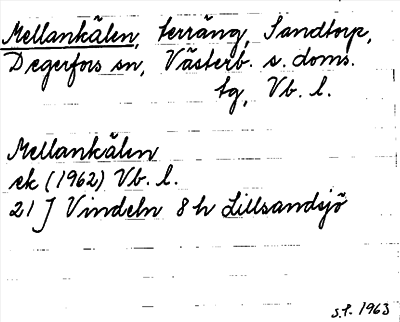 Mellankälen, terräng, Sandtorp,
Degerfors sn, Västerb. s. doms.
tg, Vb. l.
Mellankälen
ek (1962) Vb. l.
21 J Vindeln 8 h Lillsandsjö
s.l. 1963